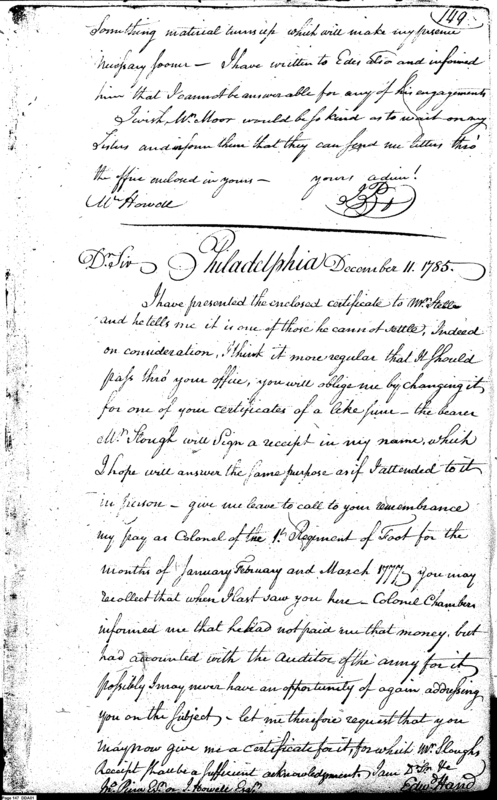 149
Something material turns up which will make my presence
necessary sooner — I have written to Edes also and informed
him that I cannot be answerable for any of his engagements
I wish Mr. Moor would be so kind as to wait on my
Sisters and inform them that they can send me letters thro'
the office enclosed in yours — yours adieu!
Mr Howell JP
Dr. Sir Philadelphia December 11. 1785.
I have presented the enclosed certificate to Mr.
and he tells me it is one of those he cannot settle, Indeed
on consideration, I think it more regular that it should
pass thro' your office, you will oblige me by changing it
for one of your certificates of a like sum — the bearer
Mr. Slough will Sign a receipt in my name, which
I hope will answer the same purpose as if I attended to it
in person — give me leave to call to your remembrance
my pay as Colonel of the 1st. Regiment of Foot for the
months of January February and March 1777, you may
recollect that when I last saw you here — Colonel Chambers
informed me that he had not paid me that money, but
had accounted with the auditor of the army for it
possibly I may never have an opportunity of again addressing
you on the subject — let me therefore request that you
may now give me a certificate for it, for which Mr. Sloughs
Receipt shall be a sufficient acknowledgment. I am Dr. Sir &c
Jno. Pierce Esq. or J. Howell Esq. Edwd. Hand
Page 147 DDAS1